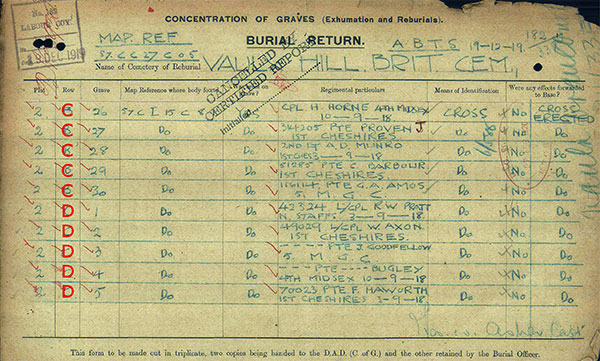 LABOUR COY.
DEC 1919
CONCENTRATION OF GRAVES (Exhumation and Reburials).
BURIAL RETURN.
MAP. REF
57. C C 27 C 05
A B T S 19-12-19.
Name of Cemetery of Reburial
HILL. BRIT CEM.,
CANCELLED BY
CERTIFIED REPORT
Initialled
Plot Row Grave Map Reference where body found Regimental particulars Means of Identification Were any effects forwarded to Base?
2 C 26 CPL H. HORNE 4TH MIDSEX CROSS No CROSS ERECTED
10-9-18
2 C 27 Do Do 34205 PTE PROVEN J Do No Do
1ST CHESHIRES.
2 C 28 Do Do 2ND LT A.D. MUNKO Do No Do
1ST CHES 3-9-18
2 C 29 Do Do 51285 PTE C. BARBOUR Do No Do
1ST CHESHIRES.
2 C 30 Do Do 116114 PTE G.A. AMOS Do No Do
5. M.G.C
2 D 1 Do Do 42324 L/CPL R W PRATT Do No Do
N. STAFFS. 3-9-18.
2 D 2 Do Do 49029 L/CPL W. AXON Do No Do
1ST CHESHIRES.
2 D 3 Do Do - - - - PTE J. GOODFELLOW Do No Do
5. M G C
2 D 4 Do Do - - - PTE - - - - BUGLEY Do No Do
4TH MIDSEX 10-9-18
2 D 5 Do Do 70023 PTE F. HAWORTH Do No Do
1ST CHESHIRES 3-9-18.
This form to be made out in triplicate, two copies being handed to the D.A.D. (C. of G.) and the other retained by the Burial Officer.